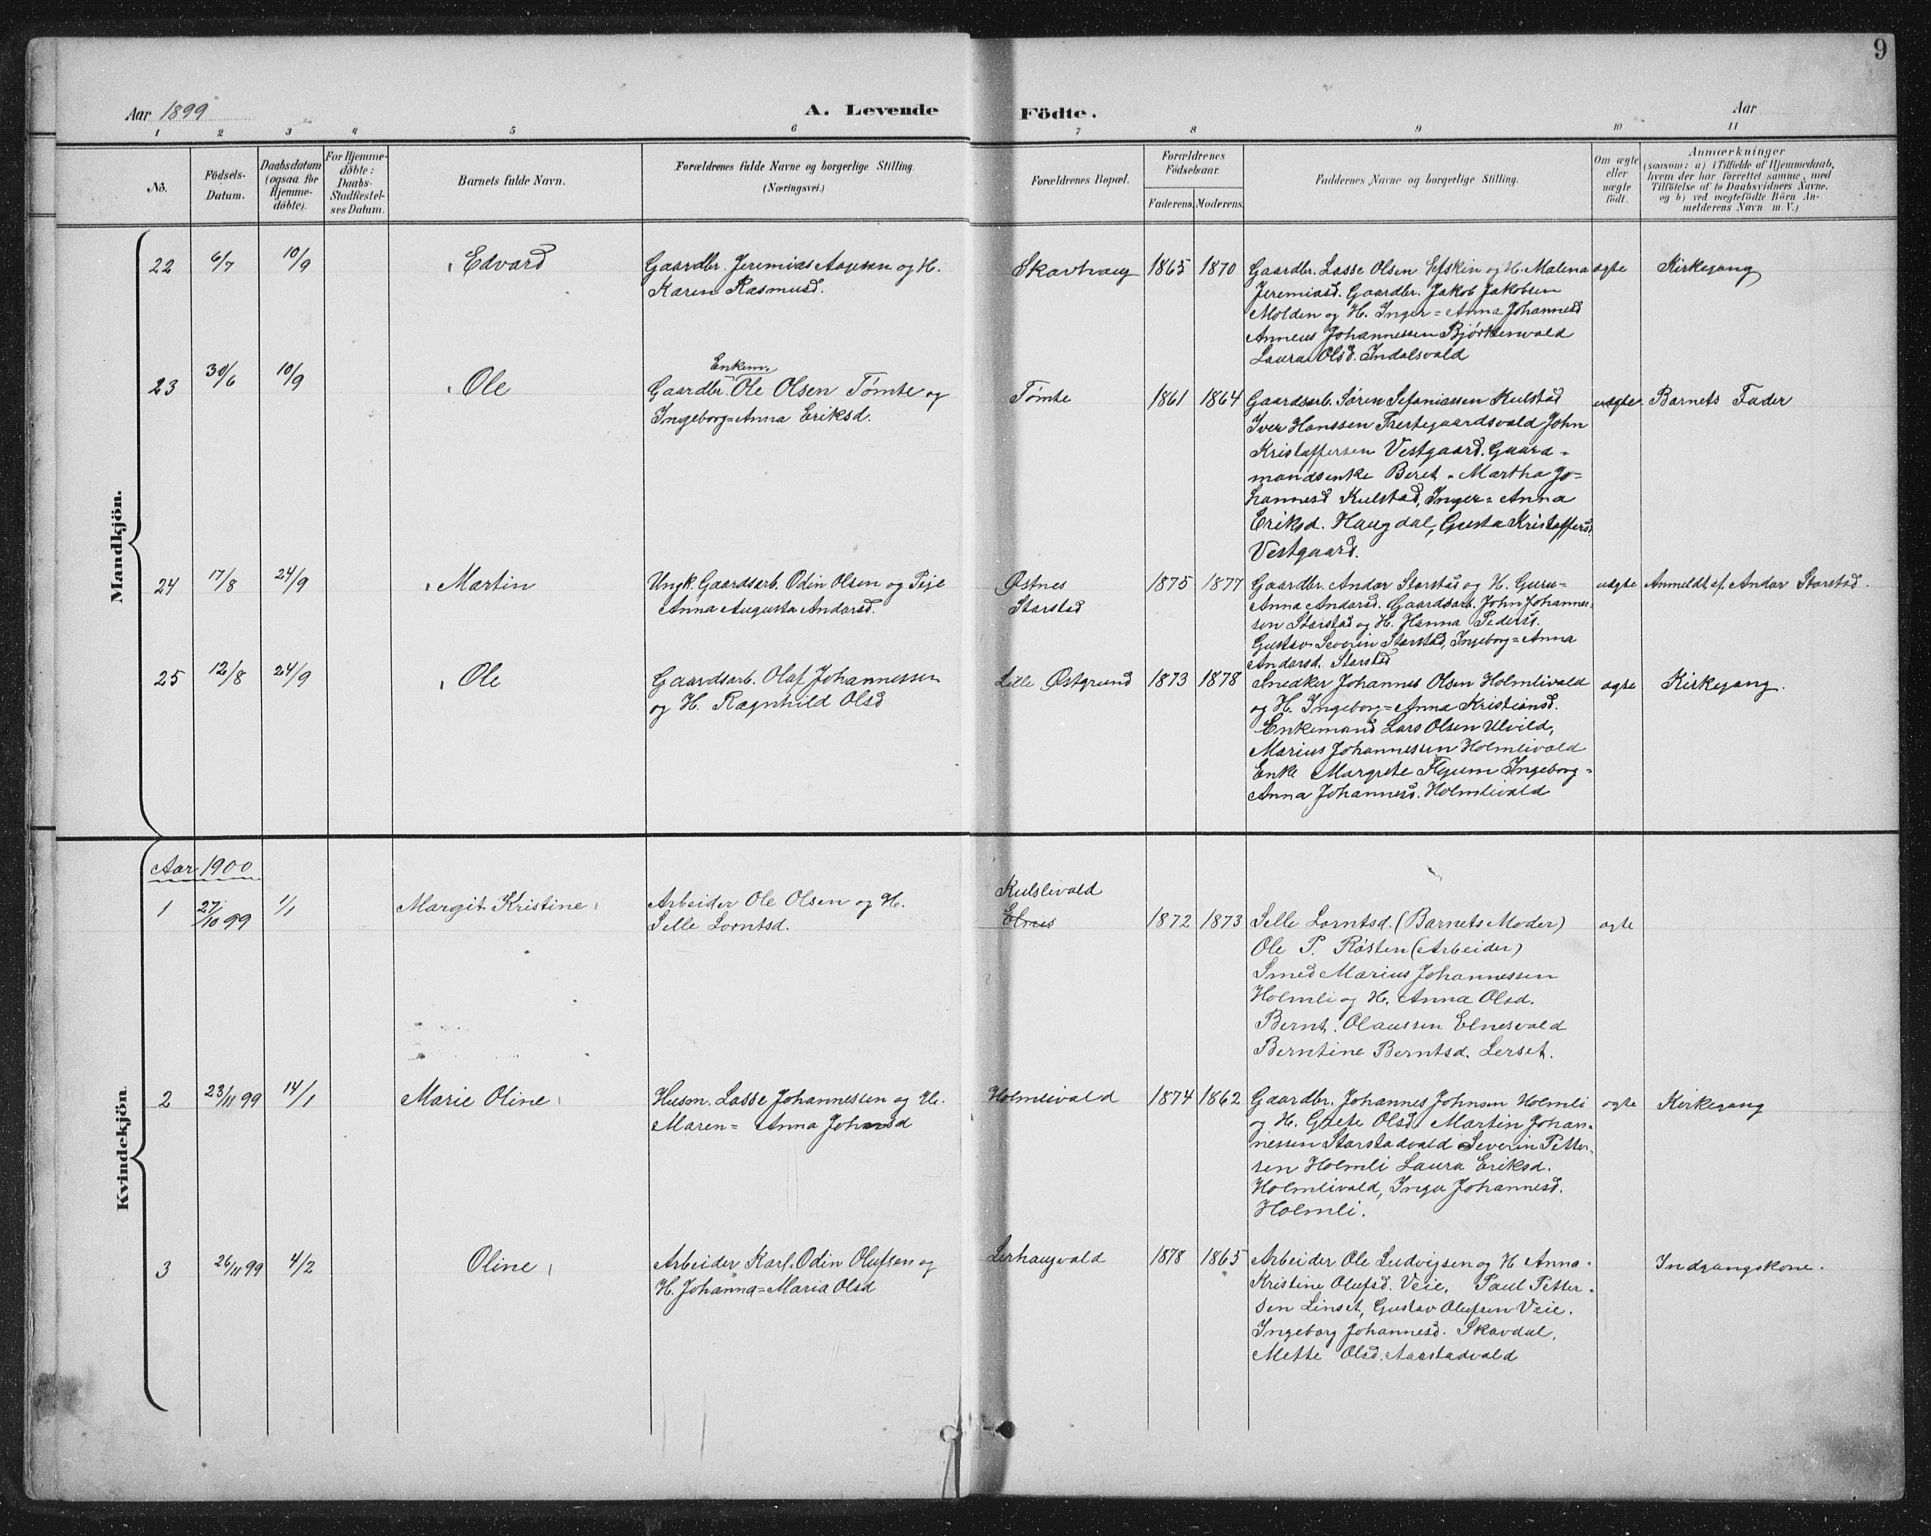 9
Aar 1899
A. Levende Födte.
Aar
1 2 3 4 5 6 7 8 9 10 11
No.
Födsels-
Datum.
Daabsdatum
(ogsaa for
Hjemme-
döbte).
For Hjemme-
döbte:
Daabs-
Stadfæstel-
ses Datum.
Barnets fulde Navn.
Forældrenes fulde Navne og borgerlige Stilling.
(Næringsvei.)
Forældrenes Bopæl.
Forældrenes
Födselsaar.
Faderens. Moderens.
Faddernes Navne og borgerlige Stilling.
Om ægte
eller
uægte
födt.
Anmærkninger
(saasom: a) i Tilfælde af Hjemmedaab,
hvem der har forrettet samme, med
Tilföielse af to Daabsvidners Navne.
og b) ved uægtefödte Börn An-
melderens Navn m. V.)
Mandkjön.
22 6/7 10/9 Edvard
Gaardbr. Jeremias Aagesen og H.
Karen Rasmusd.
Skavhaug 1865 1870
Gaardbr. Lasse Olsen Efskin og H. Malena
Jeremiasd. Gaardbr. Jakob Jakobsen
Molden og H. Inger=Anna Johannesd
Anneus Johannessen Bjørkenvald
Laura Olsd. Indalsvald
ægte Kirkegang
23 30/6 10/9 Ole
Enkem.
Gaardbr. Ole Olsen Tømte og
Ingeborg=Anna Eriksd.
Tømte 1861 1864
Gaardsarb. Søren Sefaniassen Kulstad
Iver Hanssen Prestegaardsvald John
Kristoffersen Vestgaard. Gaard=
mandsenke Beret=Martha Jo=
hannesd Kulstad, Inger=Anna
Eriksd. Haugdal, Gusta Kristoffersd
Vestgaard.
uægte. Barnets Fader
24 17/8 24/9 Martin
Ungk. Gaardsarb. Odin Olsen og Pige
Anna Augusta Andorsd.
Østnes
Storstad
1875 1877
Gaardbr. Andor Storstad og H. Guru=
Anna Andorsd. Gaardsarb. John Johannes-
sen Storstad og H. Hanna Pedersd.
Gustav Severin Storstad, Ingeborg=Anna
Andorsd. Storstad
uægte Anmeldt af Andor Storstad.
25 12/8 24/9 Ole
Gaardsarb. Olaf Johannessen
og H. Ragnhild Olsd
Lille Østgrund 1873 1878
Snedker Johannes Olsen Holmlivald
og H. Ingeborg=Anna Kristiansd.
Enkemand Lars Olsen Ulvild,
Marius Johannessen Holmlivald
Enke Margrete Flyum Ingeborg=
Anna Johannesd. Holmlivald
ægte Kirkegang.
Kvindekjön.
Aar 1900
1 27/10 99 1/1 Margit Kristine
Arbeider Ole Olsen og H.
Sille Lorntsd.
Kulslivald
Elnes
1872 1873
Sille Lorntsd. (Barnets Moder)
Ole P. Røsten (Arbeider)
Smed Marius Johannessen
Holmli og H. Anna Olsd.
Bernt Olaussen Elnesvald
Berntine Berntsd. Lerset.
ægte
2 23/11 99 14/1 Marie Oline
Husm. Lasse Johannessen og H.
Maren= Anna Johansd
Holmlivald 1874 1862
Gaardbr. Johannes Johnsen Holmli
og H. Grete Olsd. Martin Johan=
nessen Storstadvald Severin Petter-
sen Holmli Laura Eriksd.
Holmlivald, Inga Johannesd.
Holmli.
ægte Kirkegang
3 26/11 99 4/2 Oline
Arbeider Karl Odin Olufsen og
H. Johanna=Maria Olsd
Lerhaugvald 1878 1865
Arbeider Ole Ludvigsen og H Anna-
Kristine Olufsd. Veie, Paul Petter-
sen Linset, Gustav Olufsen Veie.
Ingeborg Johannesd. Skavdal,
Mette Olsd. Aarstadvald
Indgangskone.